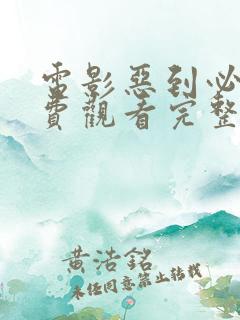 電影惡到必
費觀看完整
黃浩銘
未经同意禁止转载